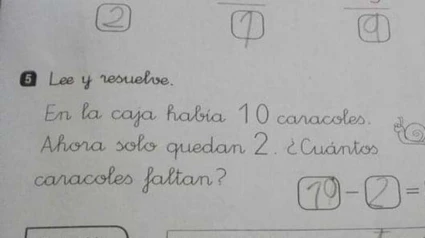 2 7 9
5 Lee y resuelve.
En la caja había 10 caracoles.
Ahora solo quedan 2. ¿Cuántos
caracoles faltan?
10 - 2 =